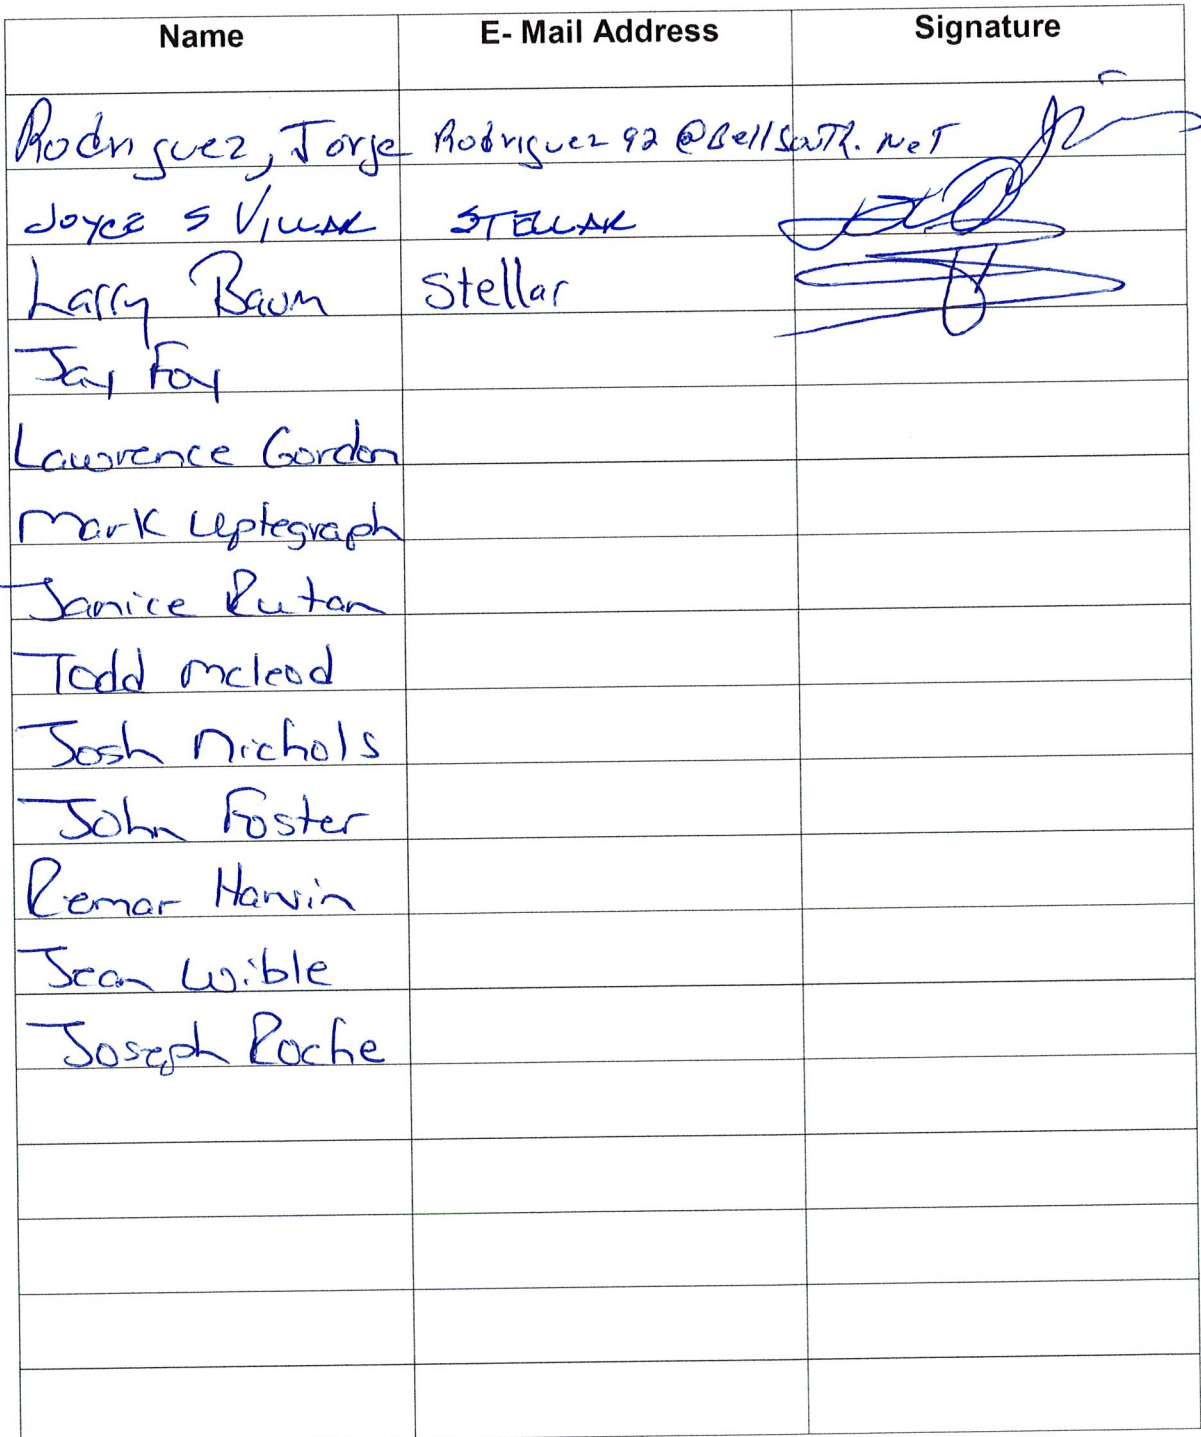 Name E- Mail Address Signature
Rodriguez, Jorge Rodriguez92@BellSouth.Net
Joyce S Villar STELLAR
Larry Baum Stellar
Jay Foy
Lawrence Gordon
Mark Uptegraph
Janice Rutan
Todd mcleod
Josh Nichols
John Foster
Remar Harvin
Jean Wible
Joseph Roche